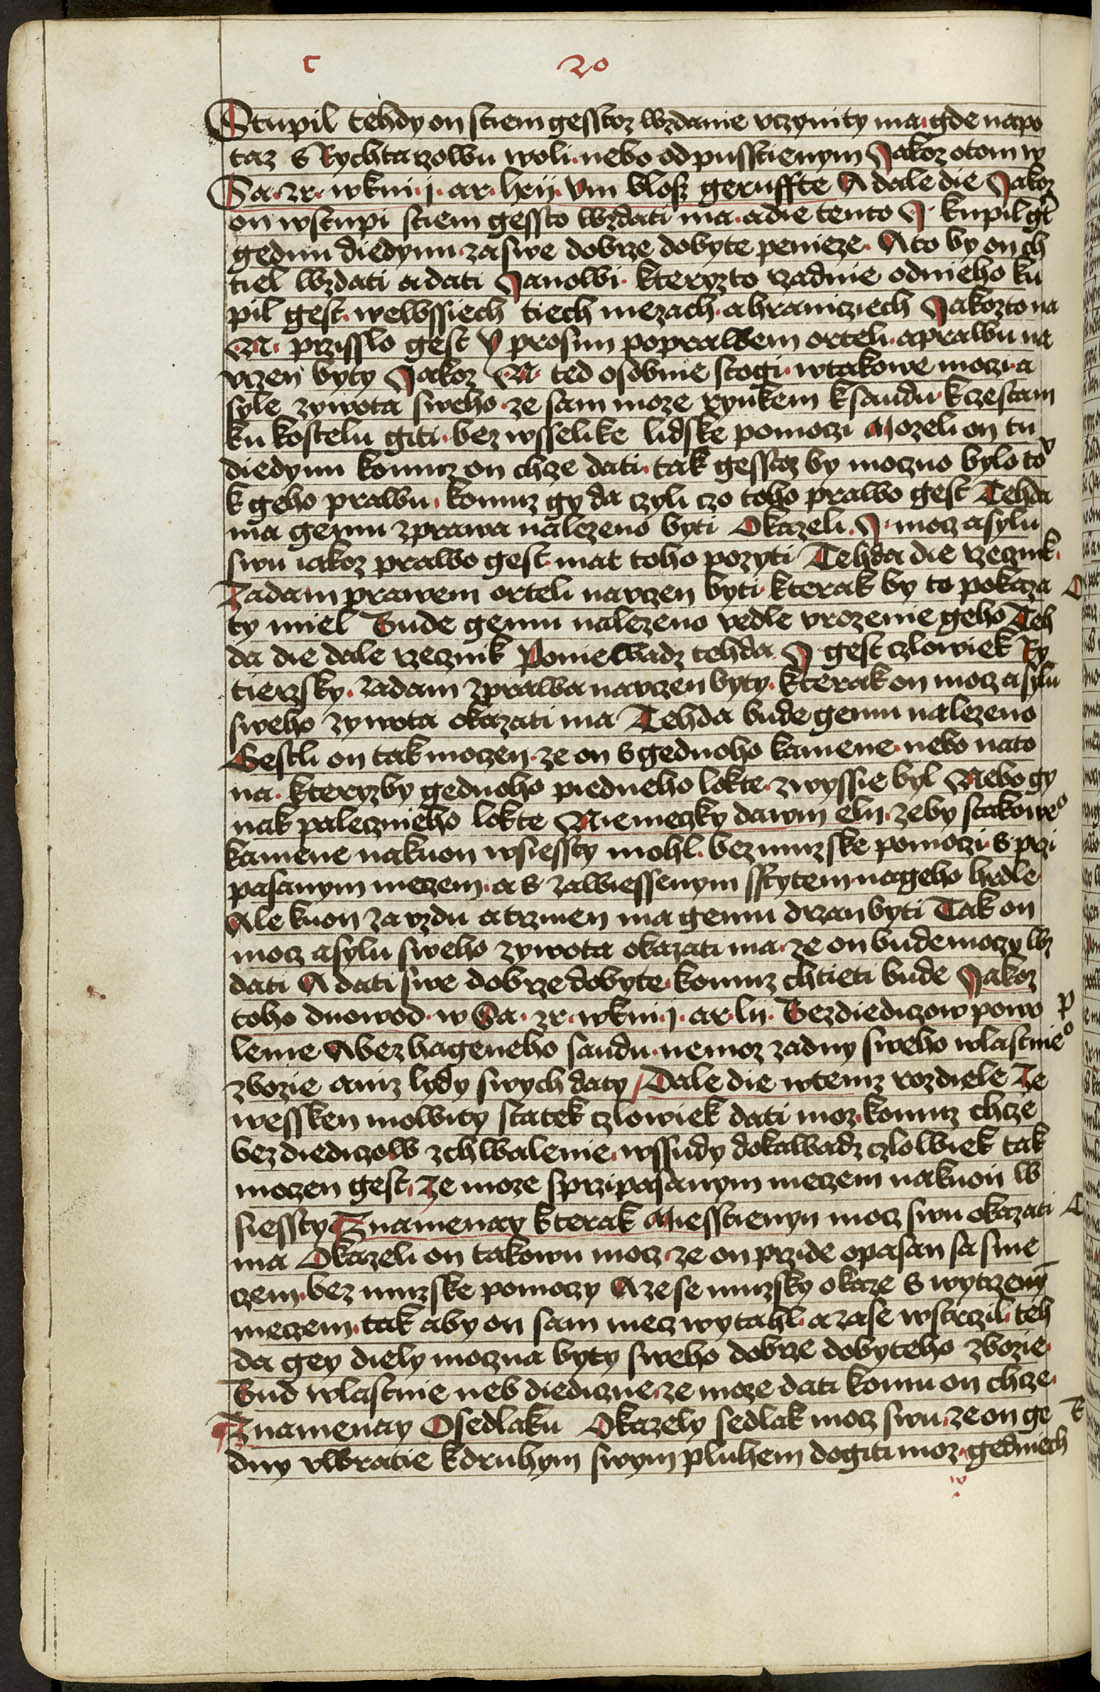 c 20
Stupil tehdy on stiem gesstoz wzdanie vczynity ma gde napo
taz s Rychtarzowu woli nebo odpusstienym Jakoz otom w
Sa· zr· wkni· j· ar· lxij· Vm bloss geruffte A dale die Jakoz
on wstupi stiem gessto wzdati ma· adie tento J· kupil gt
gedim diedynu· za swe dobrze dobyte penieze· A to by on ch
tiel wzdati a dati Janowi· kteryzto rzadnie odnieho ku
pil gest· wewssiech tiech mezach· a hraniciech Jakozto na
N· przisslo gest V prosim poprawem orteli· a prawu na
vczen byty Jakoz N· ted osobnie stogi· wtakowe moczi· a
syle zywota sweho· ze sam moze rynkem ksaudu· k czestam
ku kostelu giti· bez wsselike lidske pomoczi Mozeli on tu
diedynu komuz on chze dati· tak gesstoz by moczno bylo to
k geho prawu· komuz gy da czyli czo toho prawo gest Tehda
ma gemu zprawa nalezeno byti Okazeli· J· mocz a sylu
swu iakoz prawo gest· mat toho pozyti Tehda die rzecznik·
Zadam prawem orteli navczen byti· kterak by to pokaza
ty miel Bude gemu nalezeno vedle vrozenie geho Teh
da die dale rzecznik Poniewadz tehda J gest czlowiek Ry
tierzsky· zadam zprawa navczen byty· kterak on mocz a sylu
sweho zywota okazati ma Tehda bude gemu nalezeno
Gestli on tak moczen· ze on s gednoho kamene· nebo nato
na· kteryzby gednoho piedneho lokte· zwyssie byl Nebo gy
nak palecznieho lokte Niemeczky dawm eln· zeby stakowe°
kamene nakuon wsiessty mohl· bez muzske pomoczi· s przi
pasanym meczem· a s zawiessenym sstytem· nageho hrdle
Ale kuon za vzdu a trzmen ma gemu drzan byti Tak on
mocz a sylu sweho zywota okazati ma· ze on bude moczy wz
dati A dati swe dobrze dobyte· komuz chtieti bude Jakoz
toho duowod· w Sa· zr· wkni· j· ar· lij· Bez diediczow powo
lenie· A bez hageneho saudu· nemoz zadny sweho wlastnie°
zbozie aniz lydy swych daty / Dale die wtemz rozdiele Ze
wessken mowity statek czlowiek dati moz· komuz chze
bez diediczow zchwalenie· wssudy dokawadz czlowiek tak
moczen gest· Ze moze s przipasanym meczem nakuon w
siessty Znamenay kterak Miesstienyn mocz swu okazati
ma Okazeli on takowu mocz· ze on przide opasan sa sme
czem· bez muzske pomoczy A ze se muzsky okaze s wytrzenym
meczem· tak aby on sam mecz wytahl· a zase wstrczil· teh
da gey diely moczna byty sweho dobrze dobyteho zbozie·
Bud wlastnie neb diediczne· ze moze dati komu on chze·
Znamenay Osedlaku Okazely sedlak mocz swu· ze on ge
dny vwratie kdruhym swym pluhem dogiti moz· gedniech